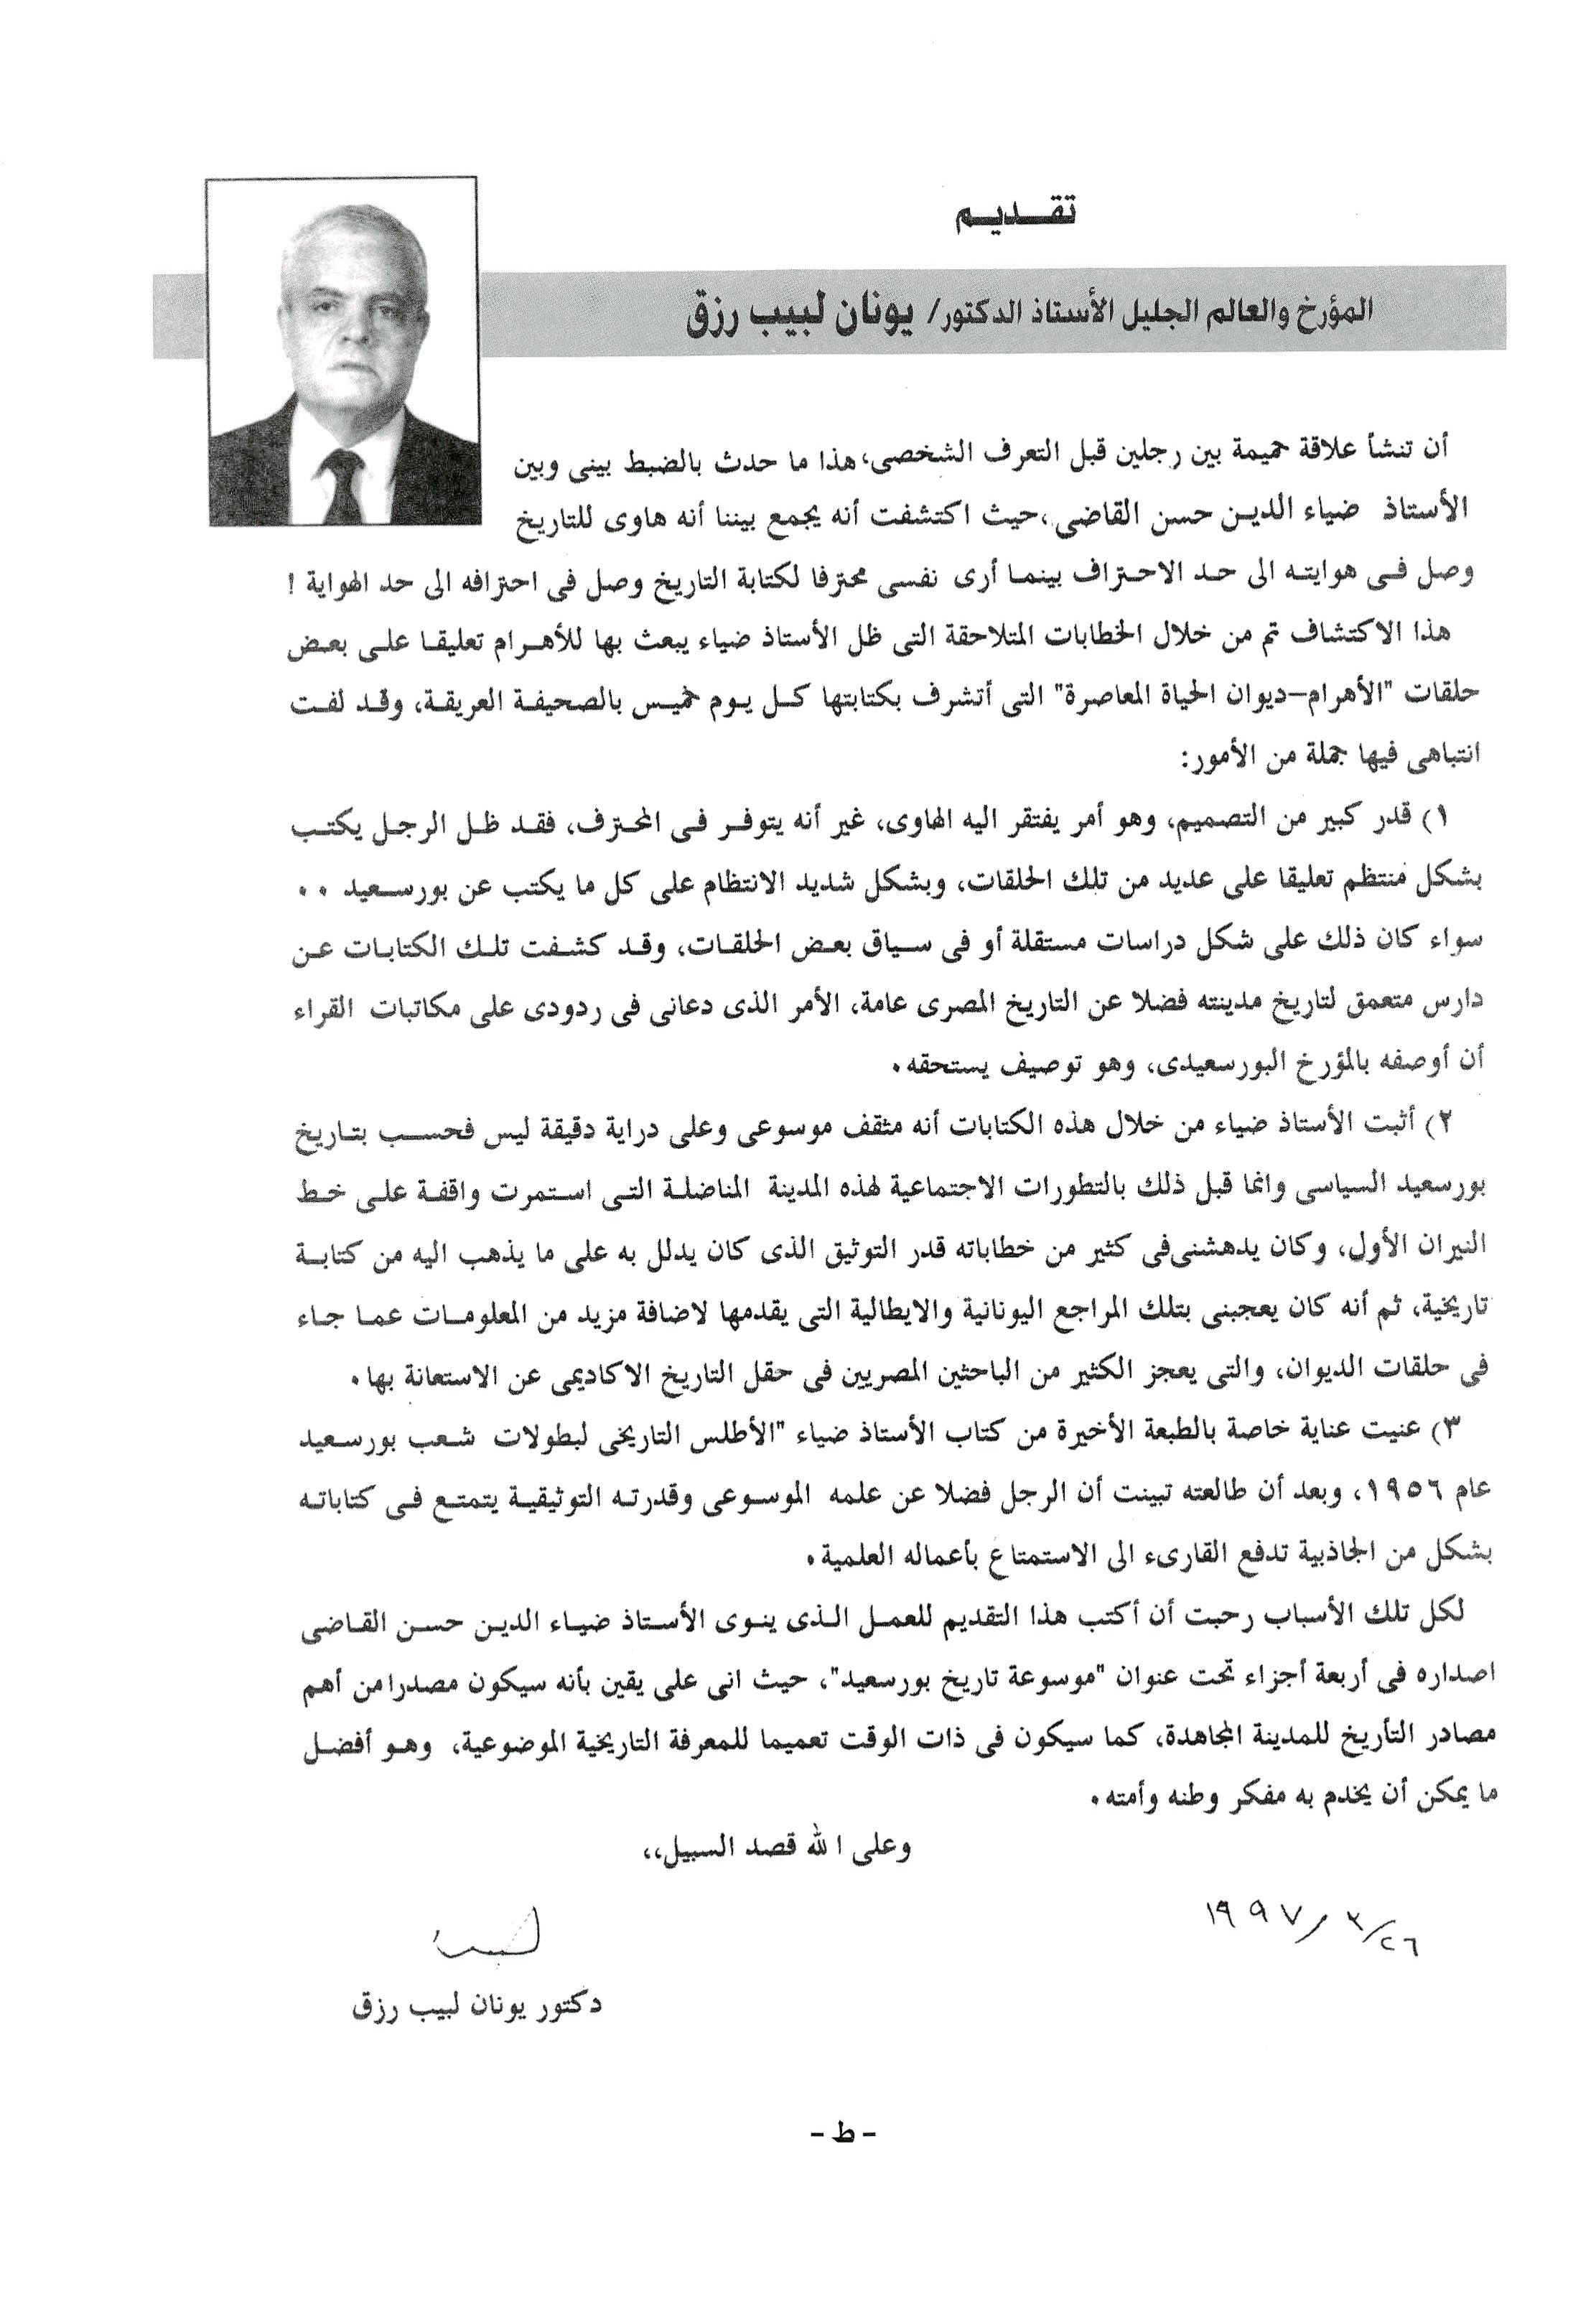 تقديم
المؤرخ والعالم الجليل الأستاذ الدكتور/ يونان لبيب رزق
أن تنشأ علاقة حميمة بين رجلين قبل التعرف الشخصى، هذا ما حدث بالضبط بينى وبين
الأستاذ ضياء الدين حسن القاضى، حيث اكتشفت أنه يجمع بيننا أنه هاوى للتاريخ
وصل فى هوايته الى حد الاحتراف بينما أرى نفسى محترفا لكتابة التاريخ وصل فى احترافه الى حد الهواية !
هذا الاكتشاف تم من خلال الخطابات المتلاحقة التى ظل الأستاذ ضياء يبعث بها للأهرام تعليقا على بعض
حلقات "الأهرام-ديوان الحياة المعاصرة" التى أتشرف بكتابتها كل يوم خميس بالصحيفة العريقة، وقد لفت
انتباهى فيها جملة من الأمور:
١) قدر كبير من التصميم، وهو أمر يفتقر اليه الهاوى، غير أنه يتوفر فى المحترف، فقد ظل الرجل يكتب
بشكل منتظم تعليقا على عديد من تلك الحلقات، وبشكل شديد الانتظام على كل ما يكتب عن بورسعيد ..
سواء كان ذلك على شكل دراسات مستقلة أو فى سياق بعض الحلقات، وقد كشفت تلك الكتابات عن
دارس متعمق لتاريخ مدينته فضلا عن التاريخ المصرى عامة، الأمر الذى دعانى فى ردودى على مكاتبات القراء
أن أوصفه بالمؤرخ البورسعيدى، وهو توصيف يستحقه.
٢) أثبت الأستاذ ضياء من خلال هذه الكتابات أنه مثقف موسوعى وعلى دراية دقيقة ليس فحسب بتاريخ
بورسعيد السياسى وانما قبل ذلك بالتطورات الاجتماعية لهذه المدينة المناضلة التى استمرت واقفة على خط
النيران الأول، وكان يدهشنى فى كثير من خطاباته قدر التوثيق الذى كان يدلل به على ما يذهب اليه من كتابة
تاريخية، ثم أنه كان يعجبنى بتلك المراجع اليونانية والايطالية التى يقدمها لاضافة مزيد من المعلومات عما جاء
فى حلقات الديوان، والتى يعجز الكثير من الباحثين المصريين فى حقل التاريخ الاكاديمى عن الاستعانة بها.
٣) عنيت عناية خاصة بالطبعة الأخيرة من كتاب الأستاذ ضياء "الأطلس التاريخى لبطولات شعب بورسعيد
عام ١٩٥٦، وبعد أن طالعته تبينت أن الرجل فضلا عن علمه الموسوعى وقدرته التوثيقية يتمتع فى كتاباته
بشكل من الجاذبية تدفع القارىء الى الاستمتاع بأعماله العلمية.
لكل تلك الأسباب رحبت أن أكتب هذا التقديم للعمل الذى ينوى الأستاذ ضياء الدين حسن القاضى
اصداره فى أربعة أجزاء تحت عنوان "موسوعة تاريخ بورسعيد"، حيث انى على يقين بأنه سيكون مصدرا من أهم
مصادر التأريخ للمدينة المجاهدة، كما سيكون فى ذات الوقت تعميما للمعرفة التاريخية الموضوعية، وهو أفضل
ما يمكن أن يخدم به مفكر وطنه وأمته.
وعلى الله قصد السبيل،،
٢٦/٣/١٩٩٧
لبيب
دكتور يونان لبيب رزق
- ط -